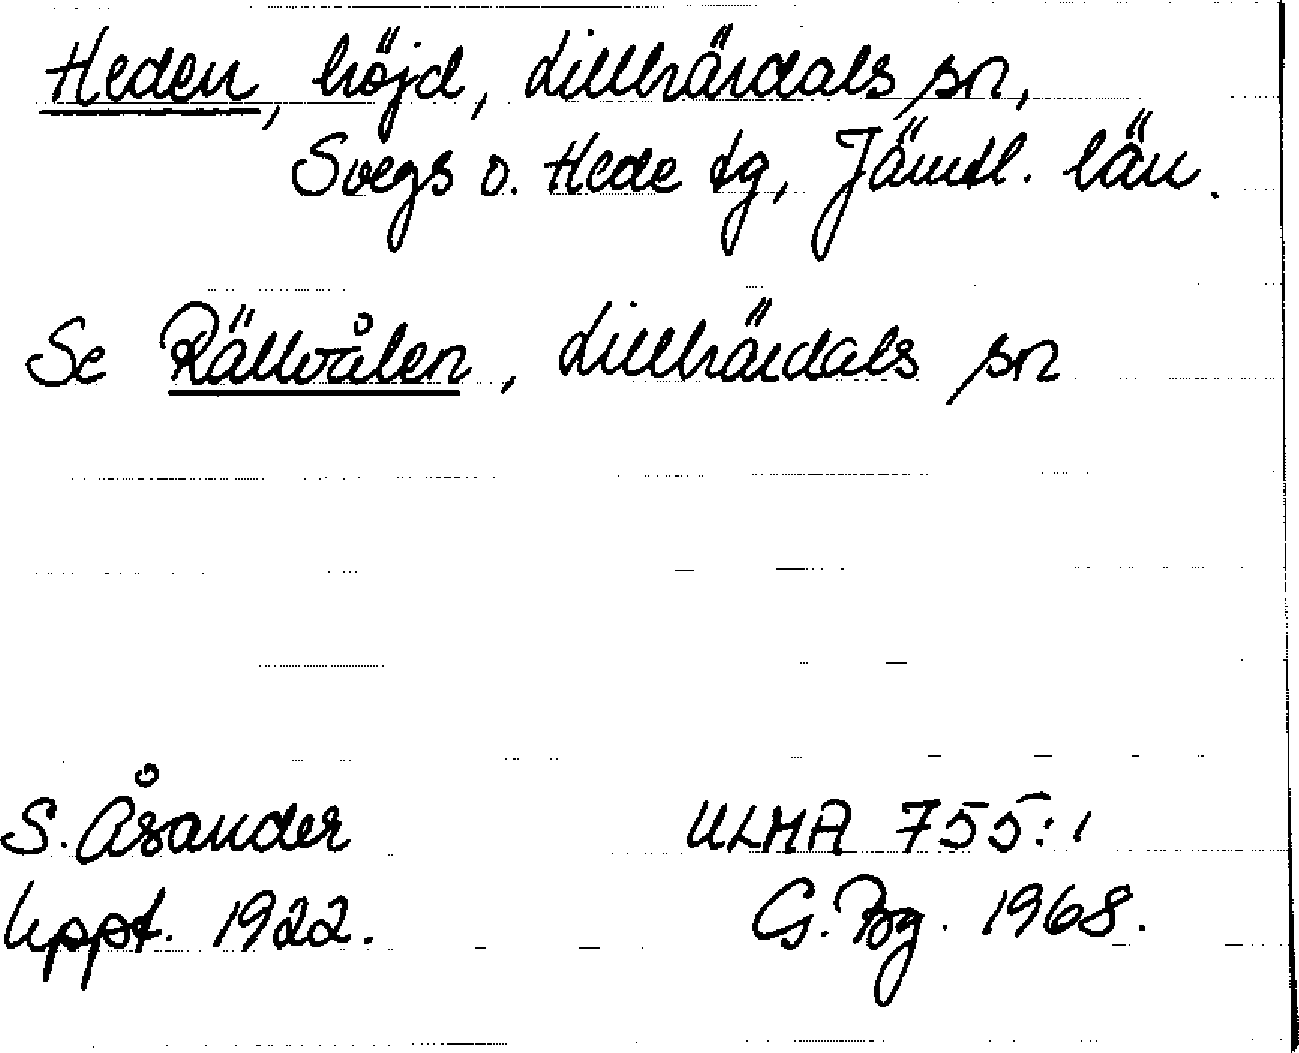 Heden, höjd, Lillhärdals sn,
Svegs o. Hede tg, Jämtl. län.
Se Rällvålen, Lillhärdals sn
S. Åsander ULMA 755:1
Uppt. 1922. G. Bg. 1968.